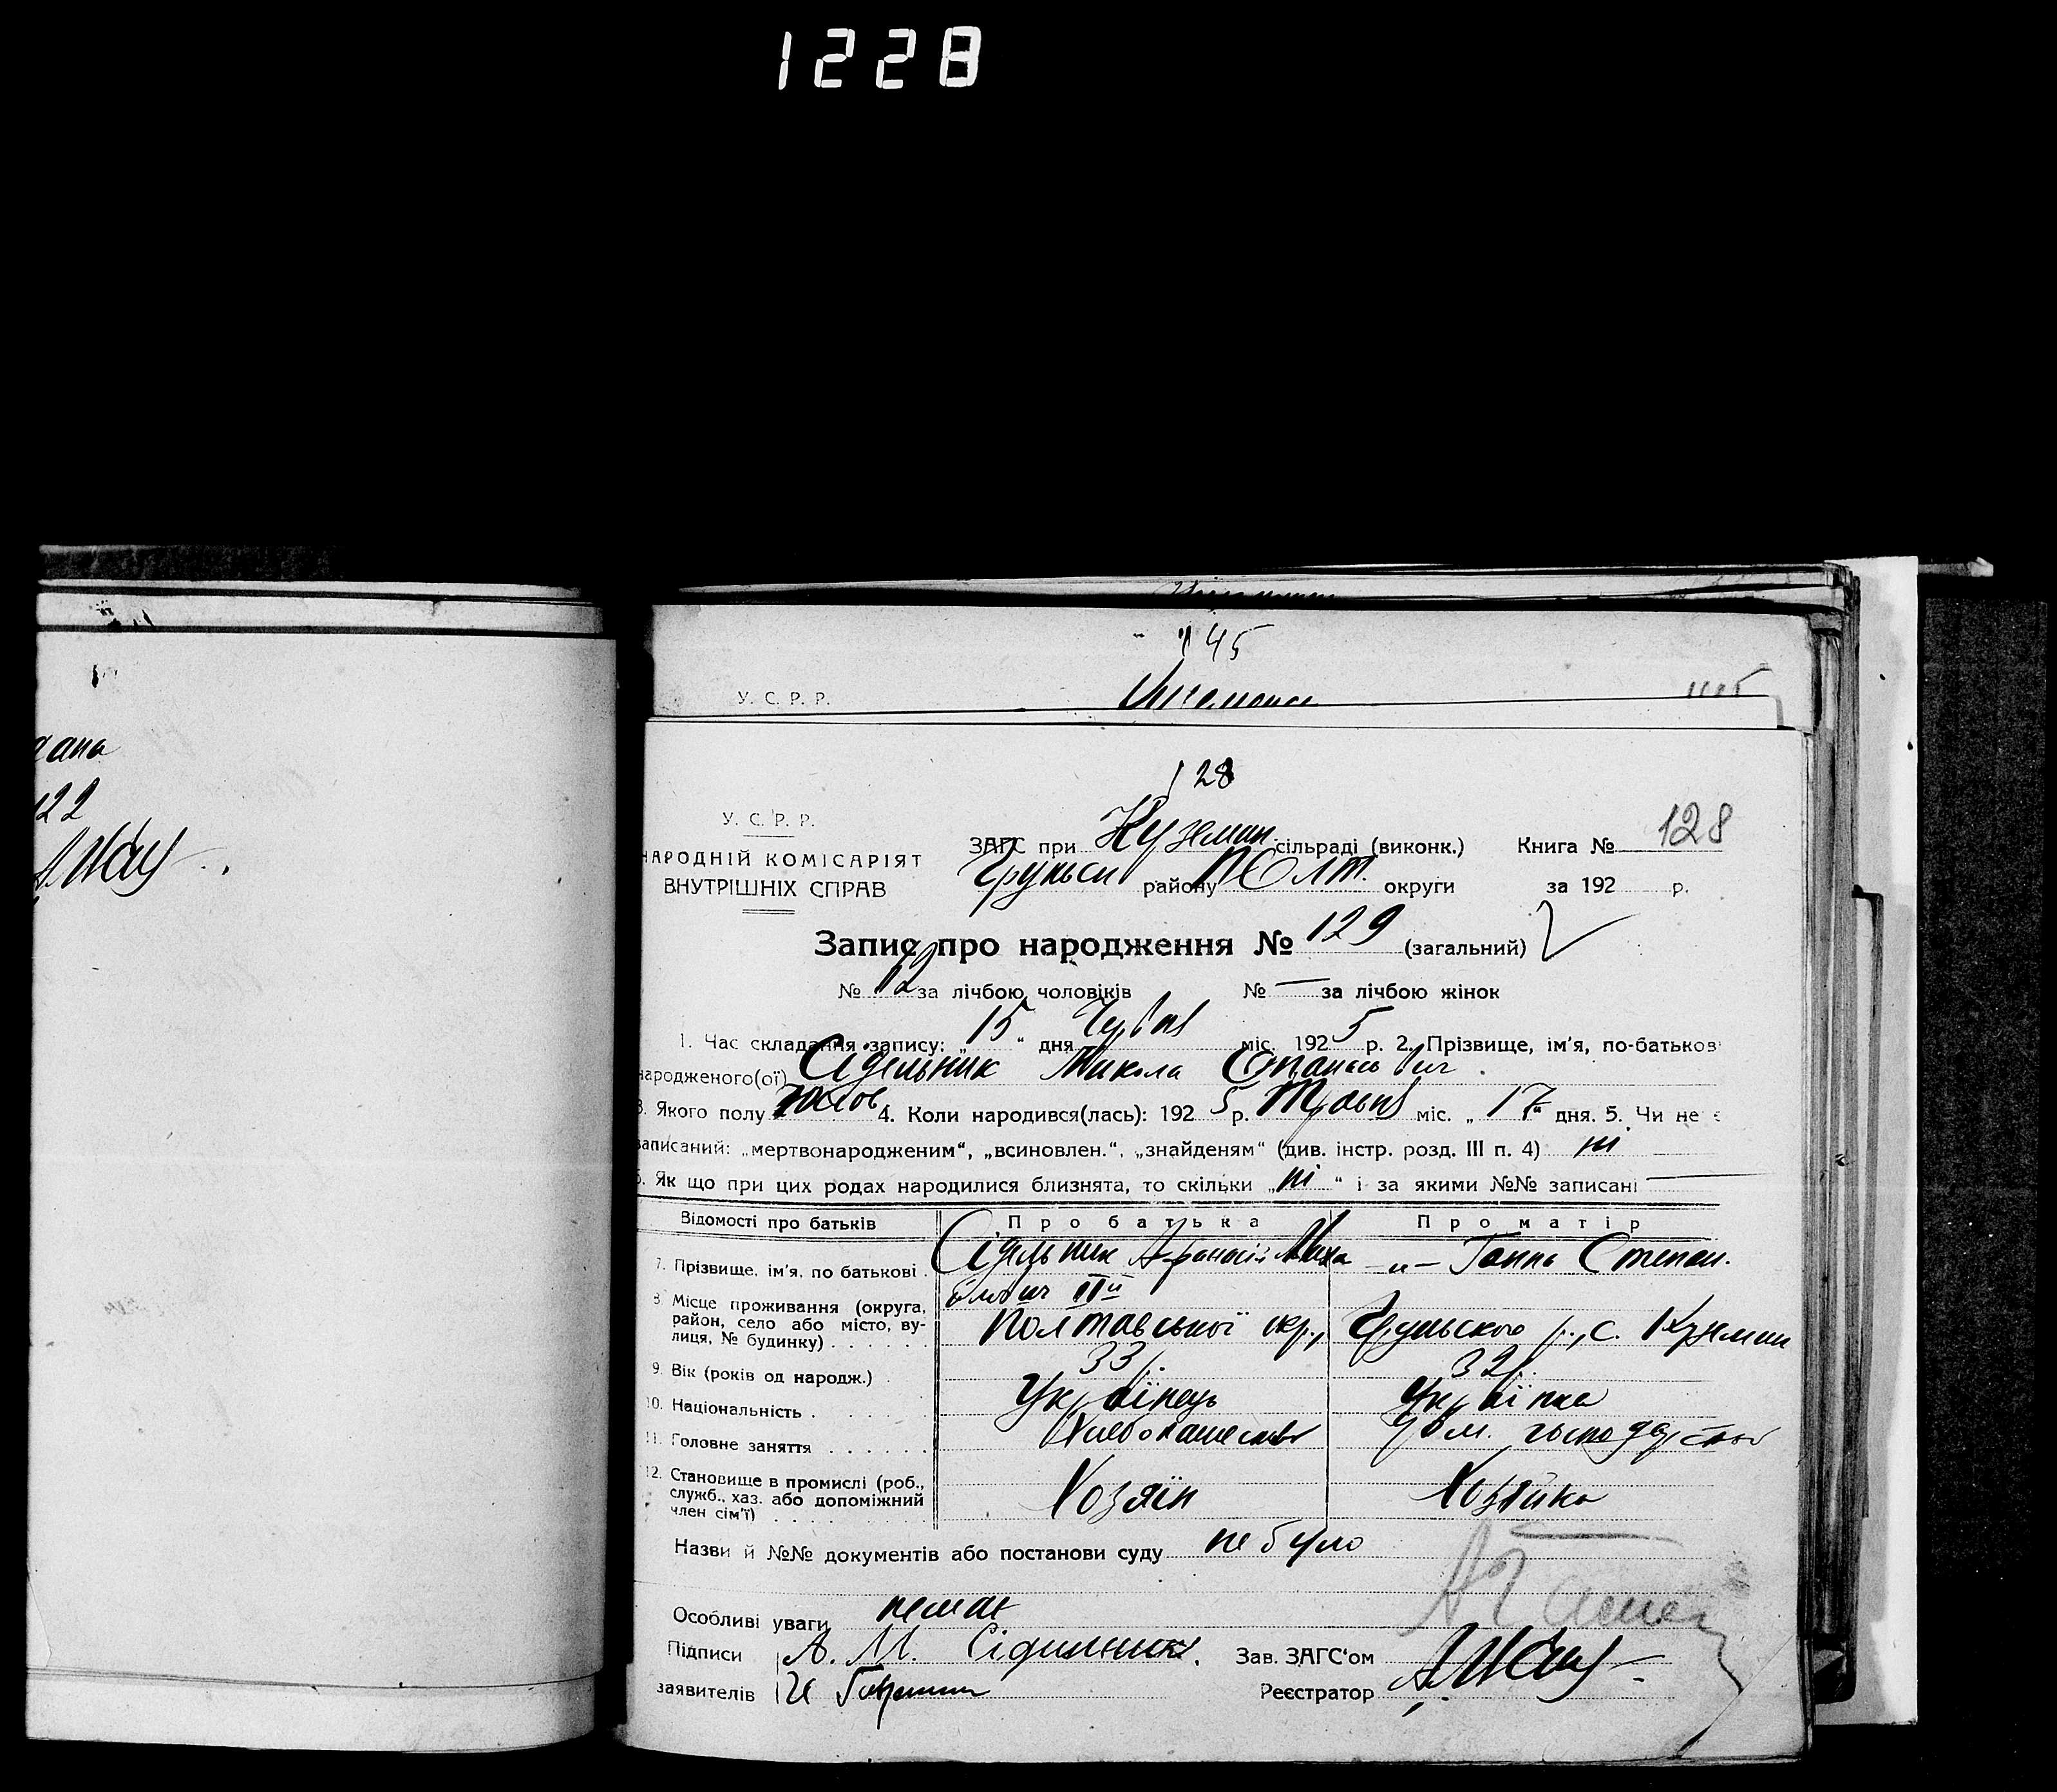 1228
145
У. С. Р. Р.
128
У. С. Р. Р.
128
ЗАГС при Куземин сільраді (виконк.) Книга №
НАРОДНІЙ КОМІСАРІЯТ
Груньськ району Полт. округи за 192 р.
ВНУТРІШНІХ СПРАВ
Запис про народження № 129 (загальний)
№ 62 за лічбою чоловіків № — за лічбою жінок
1. Час складання запису: „15“ дня Червня міс. 1925 р. 2. Прізвище, ім'я, по-батьков
народженого(ої) Сідельник Микола Опанасович.
3. Якого полу чолов. 4. Коли народився(лась): 1925 р. Травня міс. „17“ дня. 5. Чи не є
записаний: „мертвонародженим“, „всиновлен.“, „знайденям“ (див. інстр. розд. III п. 4) ні
6. Як що при цих родах народилися близнята, то скільки „ні“ і за якими №№ записані —
Відомості про батьків Про батька Про матір
7. Прізвище, ім'я, по батькові. Сідельник Афанасій Миха -„- Ганна Степан.
йлович ІІй
8. Місце проживання (округа,
район, село або місто, ву-
лиця, № будинку) . . . . . . Полтавської окр., Груньского р., с. Куземин
9. Вік (років од народж.) 33 р. 32 р.
10. Національність . Українець Українка
11. Головне заняття . . . . . Хлебопашество Дом. господарство
12. Становище в промислі (роб.,
служб., хаз. або допоміжний
член сім'ї) . . . . Хозяїн Хозяйка
Назви й №№ документів або постанови суду не було
Особливі уваги немає
Підписи А. М. Сідильник. Зав. ЗАГС'ом
заявителів Реєстратор
ана
122